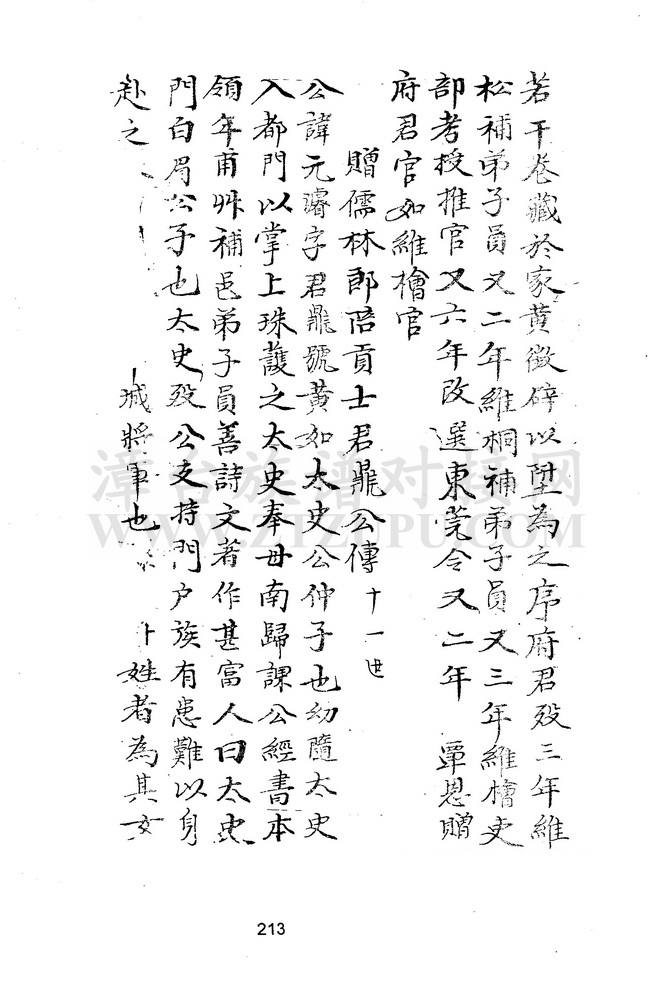 若干卷藏於家黄徵辟以陞為之序府君殁三年維
松補弟子員又二年維桐補弟子員又三年維檜吏
部考授推官又六年改選東莞令又二年 覃恩贈
府君官如維檜官
贈儒林郎陪貢士君鼎公傳 十一世
公諱元濬字君鼎號黄如太史公仲子也幼隨太史
入都門以掌上珠護之太史奉母南歸課公經書本
領年甫艸補邑弟子員善詩文著作甚富人曰太史
門白眉公子也太史殁公支持門户族有患難以身
赴之 城將軍也 姓者為其女
漳台族谱对接网
WWW.ZTZUPU.COM
213